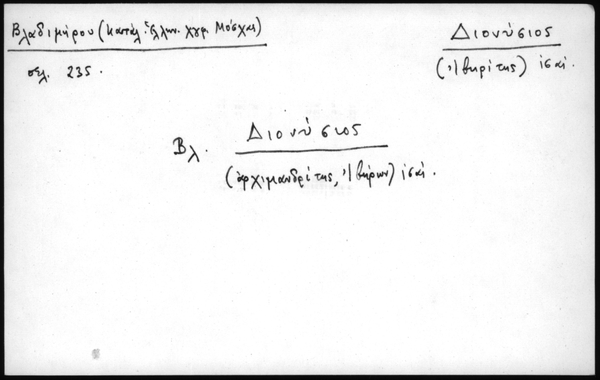 Βλαδιμήρου (Κατάλ. Ἑλλην. χγρ. Μόσχας)
σελ. 235.
Διονύσιος
(Ἰβηρίτης) ις΄ αἰ.
Βλ. Διονύσιος
(ἀρχιμανδρίτης, Ἰβήρων) ις΄ αἰ.